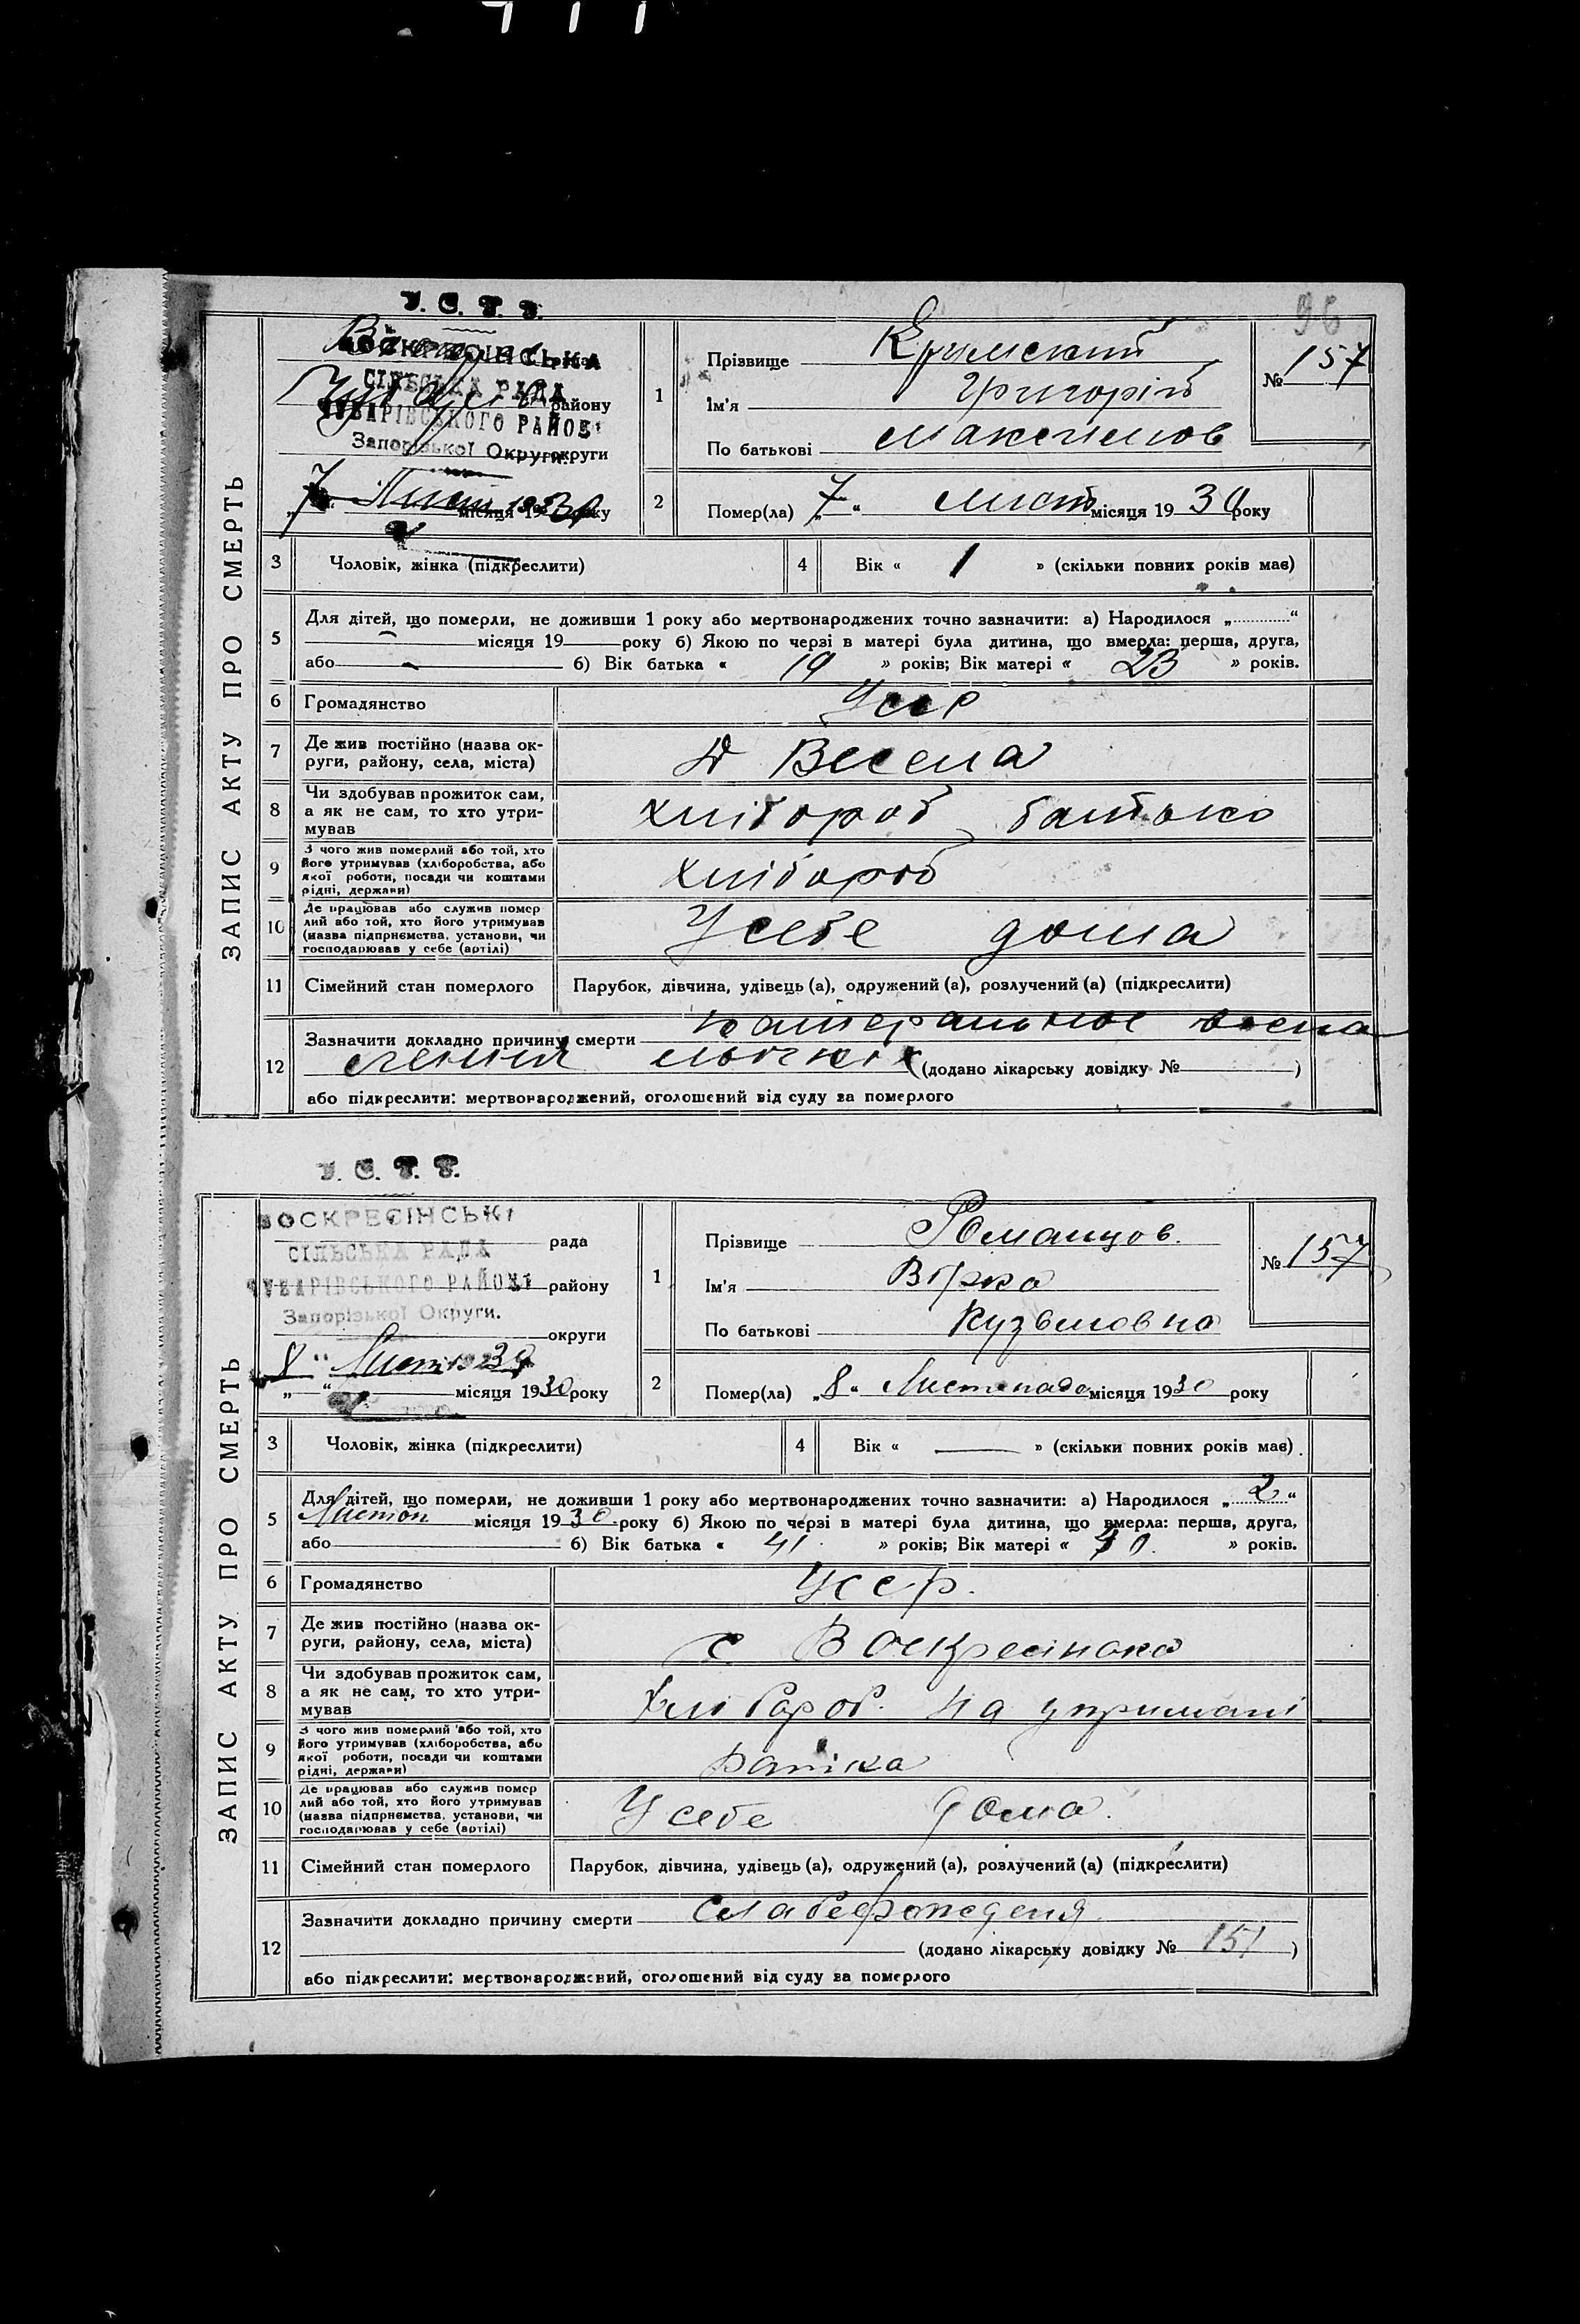 96
У. С. Р. Р.
ЗАПИС АКТУ ПРО СМЕРТЬ
ВОСКРЕСІНСЬКА
СІЛЬСЬКА РАДА
ЧУБАРІВСЬКОГО РАЙОНУ
району
Запорізької Округи.
округи
„7“ Лист місяця 1930 року
1
Прізвище Кримский
Ім'я Григорій
По батькові Максимов
№ 157
2
Помер(ла) „7“ лист місяця 1930 року
3 Чоловік, жінка (підкреслити)
4 Вік « 1 » (скільки повних років має)
5
Для дітей, що померли, не доживши 1 року або мертвонароджених точно зазначити: а) Народилося „ “
— місяця 19 року б) Якою по черзі в матері була дитина, що вмерла: перша, друга,
або — б) Вік батька « 19 » років; Вік матері « 23 » років.
6 Громадянство Усср
7 Де жив постійно (назва ок-
руги, району, села, міста) Весела
8 Чи здобував прожиток сам,
а як не сам, то хто утри-
мував хлібороб батько
9 З чого жив померлий або той, хто
його утримував (хліборобства, або
якої роботи, посади чи коштами
рідні, держави) хлібороб
10 Де працював або служив помер
лий або той, хто його утримував
(назва підприємства, установи, чи
господарював у себе (артілі) У себе дома
11 Сімейний стан померлого Парубок, дівчина, удівець (а), одружений (а), розлучений (а) (підкреслити)
12
Зазначити докладно причину смерти катеральное воспа
ления (додано лікарську довідку № )
або підкреслити: мертвонароджений, оголошений від суду за померлого
У. С. Р. Р.
ЗАПИС АКТУ ПРО СМЕРТЬ
ВОСКРЕСІНСЬКА
рада
СІЛЬСЬКА РАДА
ЧУБАРІВСЬКОГО РАЙОНУ
району
Запорізької Округи.
округи
8 Лист 1930
„ “ місяця 1930 року
1
Прізвище Романцов.
Ім'я Вірка
По батькові Кузьмовна
№ 157
2
Помер(ла) „8“ Листопада місяця 1930 року
3 Чоловік, жінка (підкреслити)
4 Вік « — » (скільки повних років має)
5
Для дітей, що померли, не доживши 1 року або мертвонароджених точно зазначити: а) Народилося „2“
Листоп місяця 1930 року б) Якою по черзі в матері була дитина, що вмерла: перша, друга,
або б) Вік батька « 41 » років; Вік матері « 40 » років.
6 Громадянство Усср.
7 Де жив постійно (назва ок-
руги, району, села, міста) с Воскресінока
8 Чи здобував прожиток сам,
а як не сам, то хто утри-
мував Хлібороб. На утримані
9 З чого жив померлий або той, хто
його утримував (хліборобства, або
якої роботи, посади чи коштами
рідні, держави) батіка
10 Де працював або служив помер
лий або той, хто його утримував
(назва підприємства, установи, чи
господарював у себе (артілі) У себе дома.
11 Сімейний стан померлого Парубок, дівчина, удівець (а), одружений (а), розлучений (а) (підкреслити)
12
Зазначити докладно причину смерти слабефождения
(додано лікарську довідку № 151 )
або підкреслити: мертвонароджений, оголошений від суду за померлого